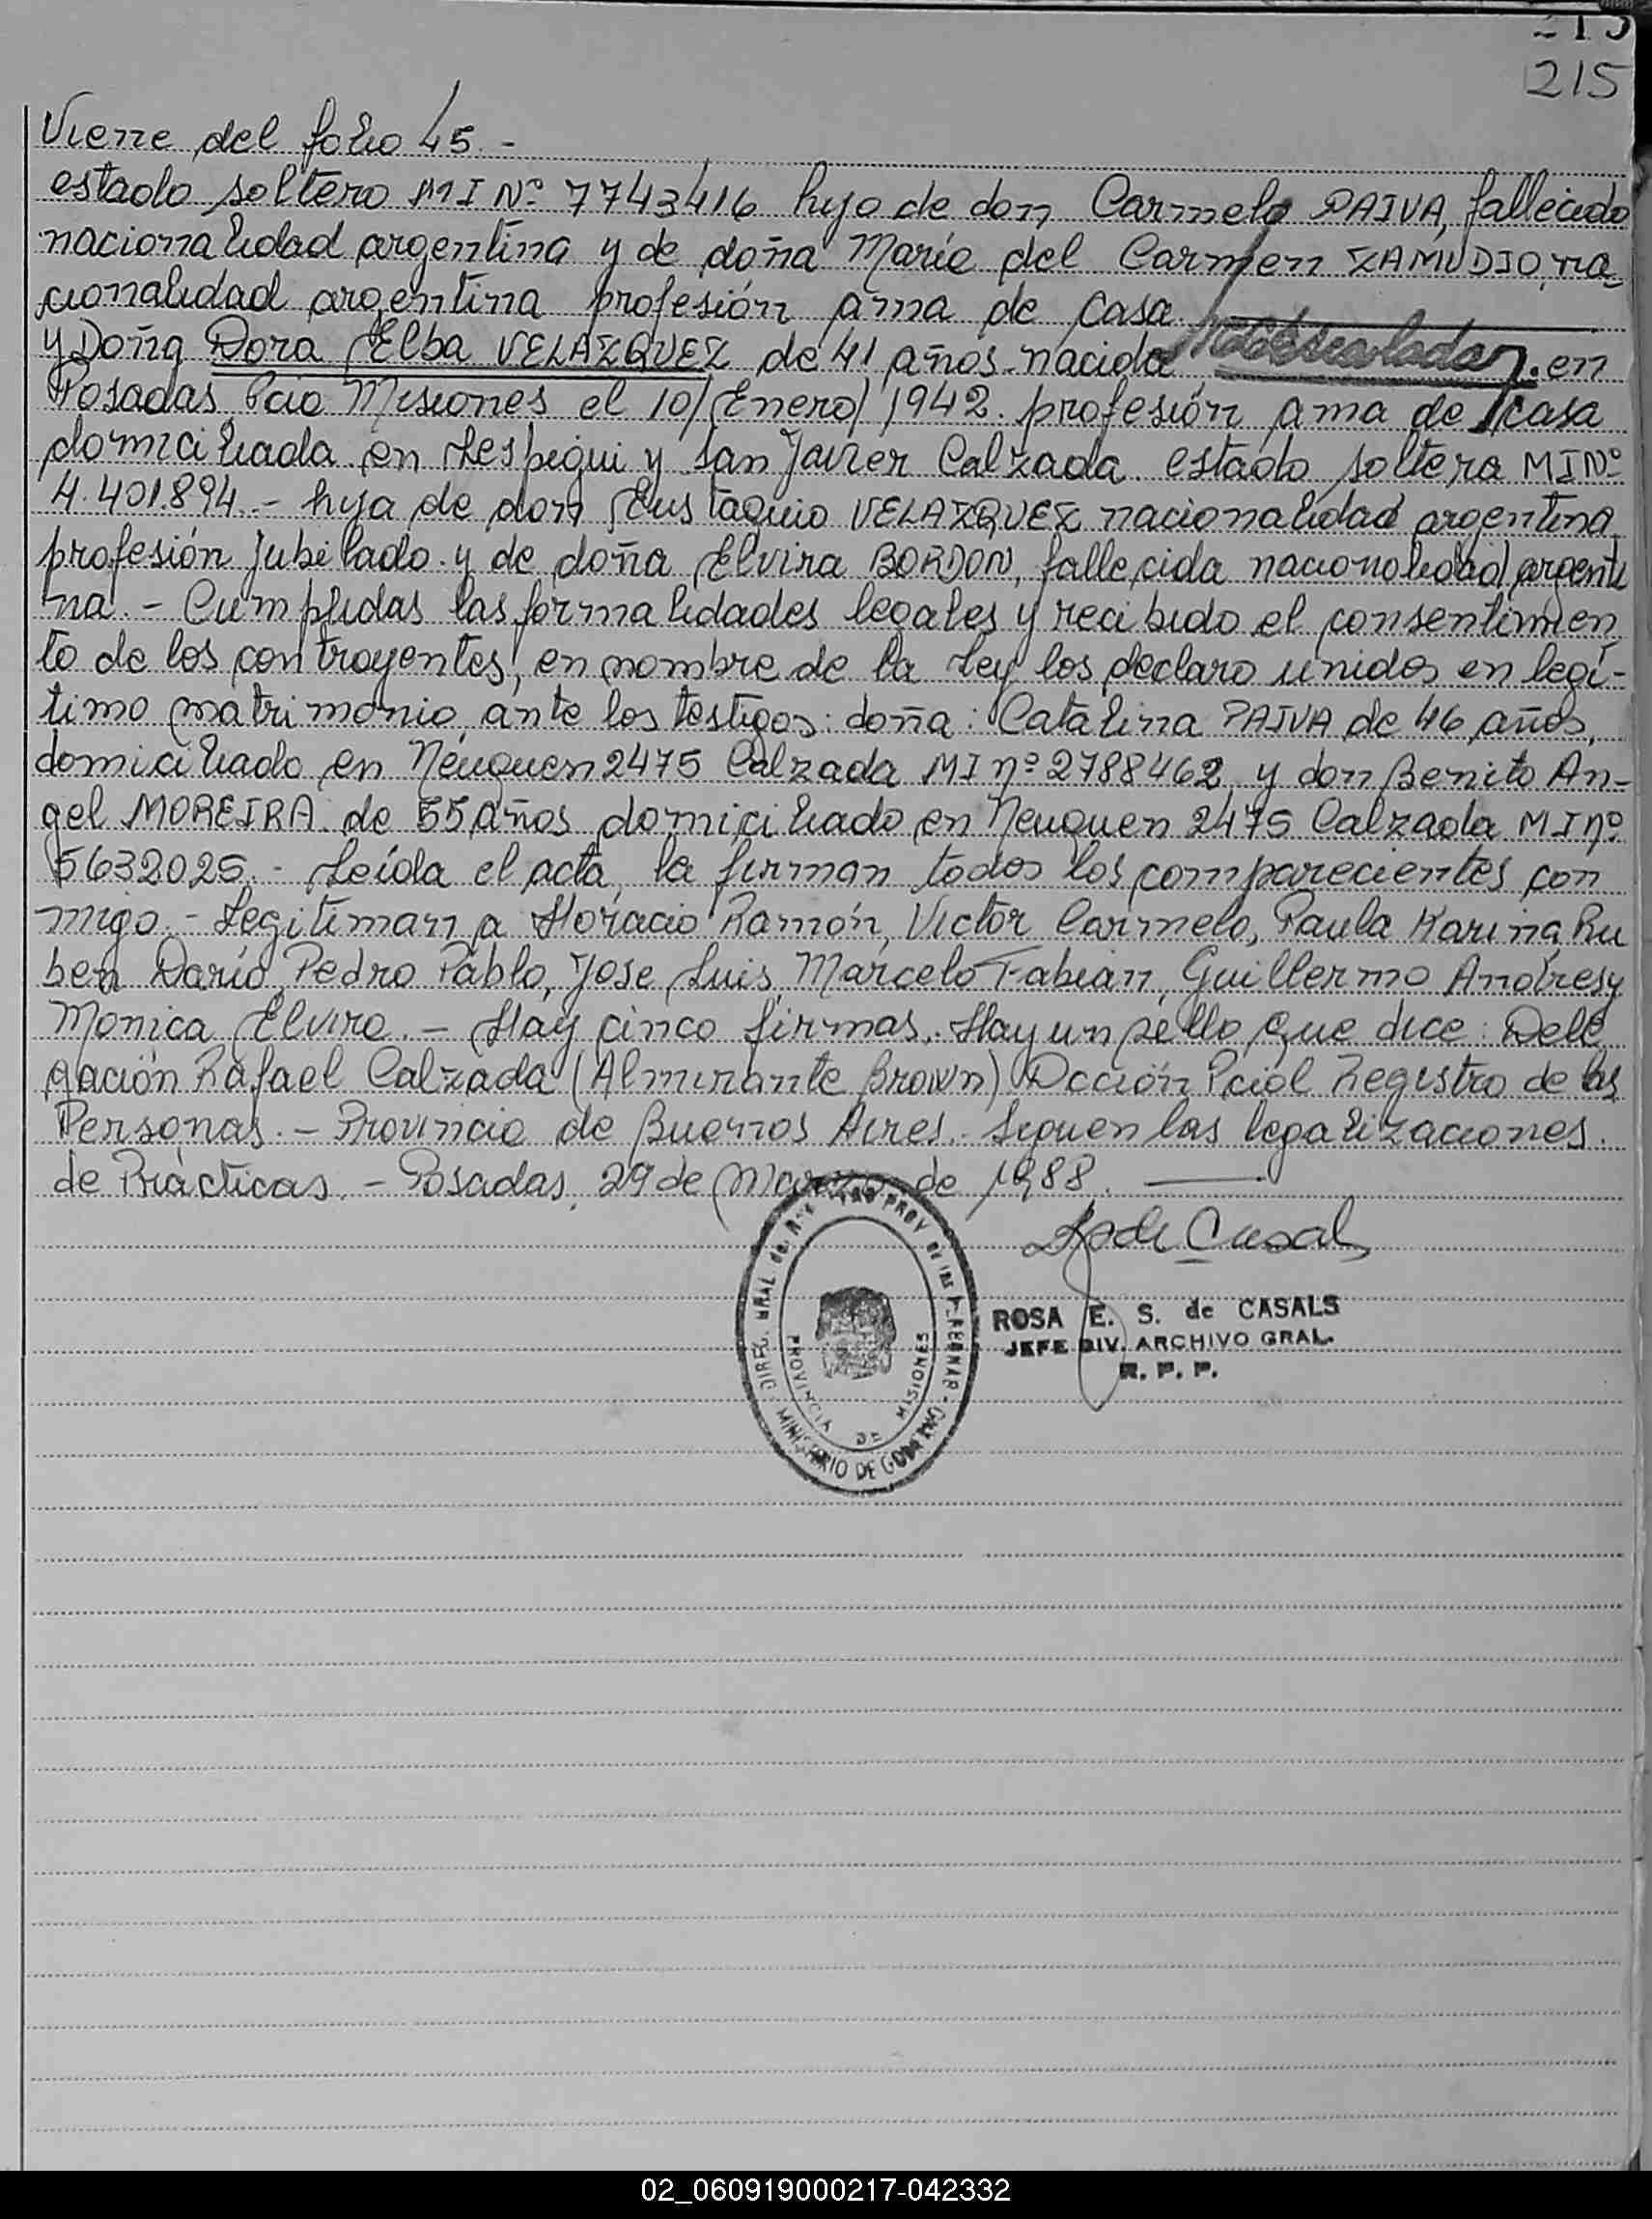 215
215
Viene del folio 45.-
estado soltero MI Nº 7743416 hijo de don Carmelo PAIVA, fallecido
nacionalidad argentina y de doña María del Carmen ZAMUDIO, na-
cionalidad argentina profesión ama de casa.
y Doña Dora Elba VELAZQUEZ de 41 años nacida en
Posadas Pcia Misiones el 10/Enero/1942. profesión ama de casa
domiciliada en y San Javier Calzada. estado soltera MI Nº
4.401.894.- hija de don Eustaquio VELAZQUEZ nacionalidad argentina
profesión jubilado y de doña Elvira BORDON, fallecida nacionalidad argenti
na.- Cumplidas las formalidades legales y recibido el consentimien
to de los contrayentes, en nombre de la Ley los declaro unidos en legí-
timo matrimonio ante los testigos: doña: Catalina PAIVA de 46 años,
domiciliado en Neuquen 2475 Calzada MI nº 2788462 y don Benito An-
gel MOREIRA de 55 años domiciliado en Neuquen 2475 Calzada MI nº
5632025.- Leída el acta, la firman todos los comparecientes con
migo.- Legitiman a Horacio Ramón, Victor Carmelo, Paula Karina, Ru
ben Darío, Pedro Pablo, Jose Luis, Marcelo Fabián, Guillermo Andres y
Monica Elvira.- Hay cinco firmas. Hay un sello que dice: Dele
gación Rafael Calzada (Almirante Brown) Dcción Pcial Registro de las
Personas.- Provincia de Buenos Aires.- Siguen las legalizaciones
de Prácticas.- Posadas, 29 de Marzo de 1988.
PROVINCIA DE MISIONES
MINISTERIO DE GOBIERNO
ROSA E. S. de CASALS
JEFE DIV. ARCHIVO GRAL.
R. P. P.
02_060919000217-042332